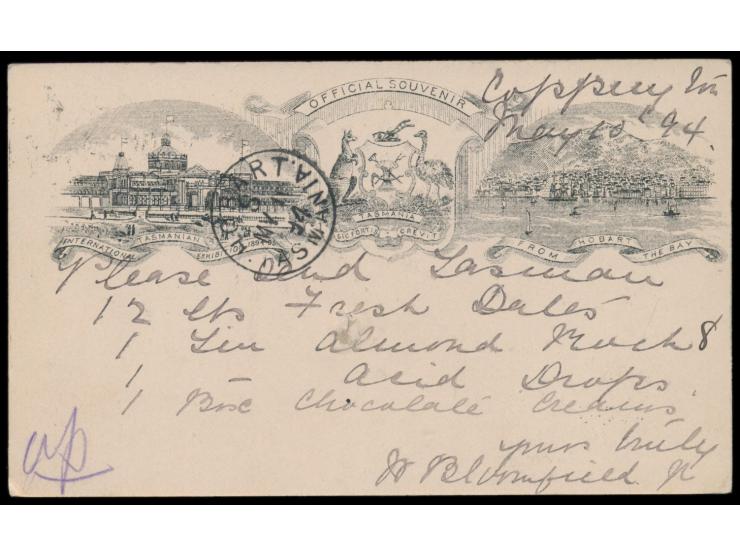 OFFICIAL SOUVENIR
May 10 '94.
HOBART
MY 11
94
TASMANIA
TASMANIA
SIC FORTIS CREVIT
INTERNATIONAL TASMANIAN EXHIBITION 1894-95
FROM HOBART THE BAY
Please send Tasman
12 lbs Fresh Dates
1 Tin Almond Rock 8
1 Acid Drops
1 Box Chocolate Creams
yours truly
Bloomfield Jr